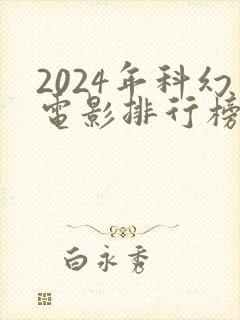 2024年科幻
电影排行榜
白永秀